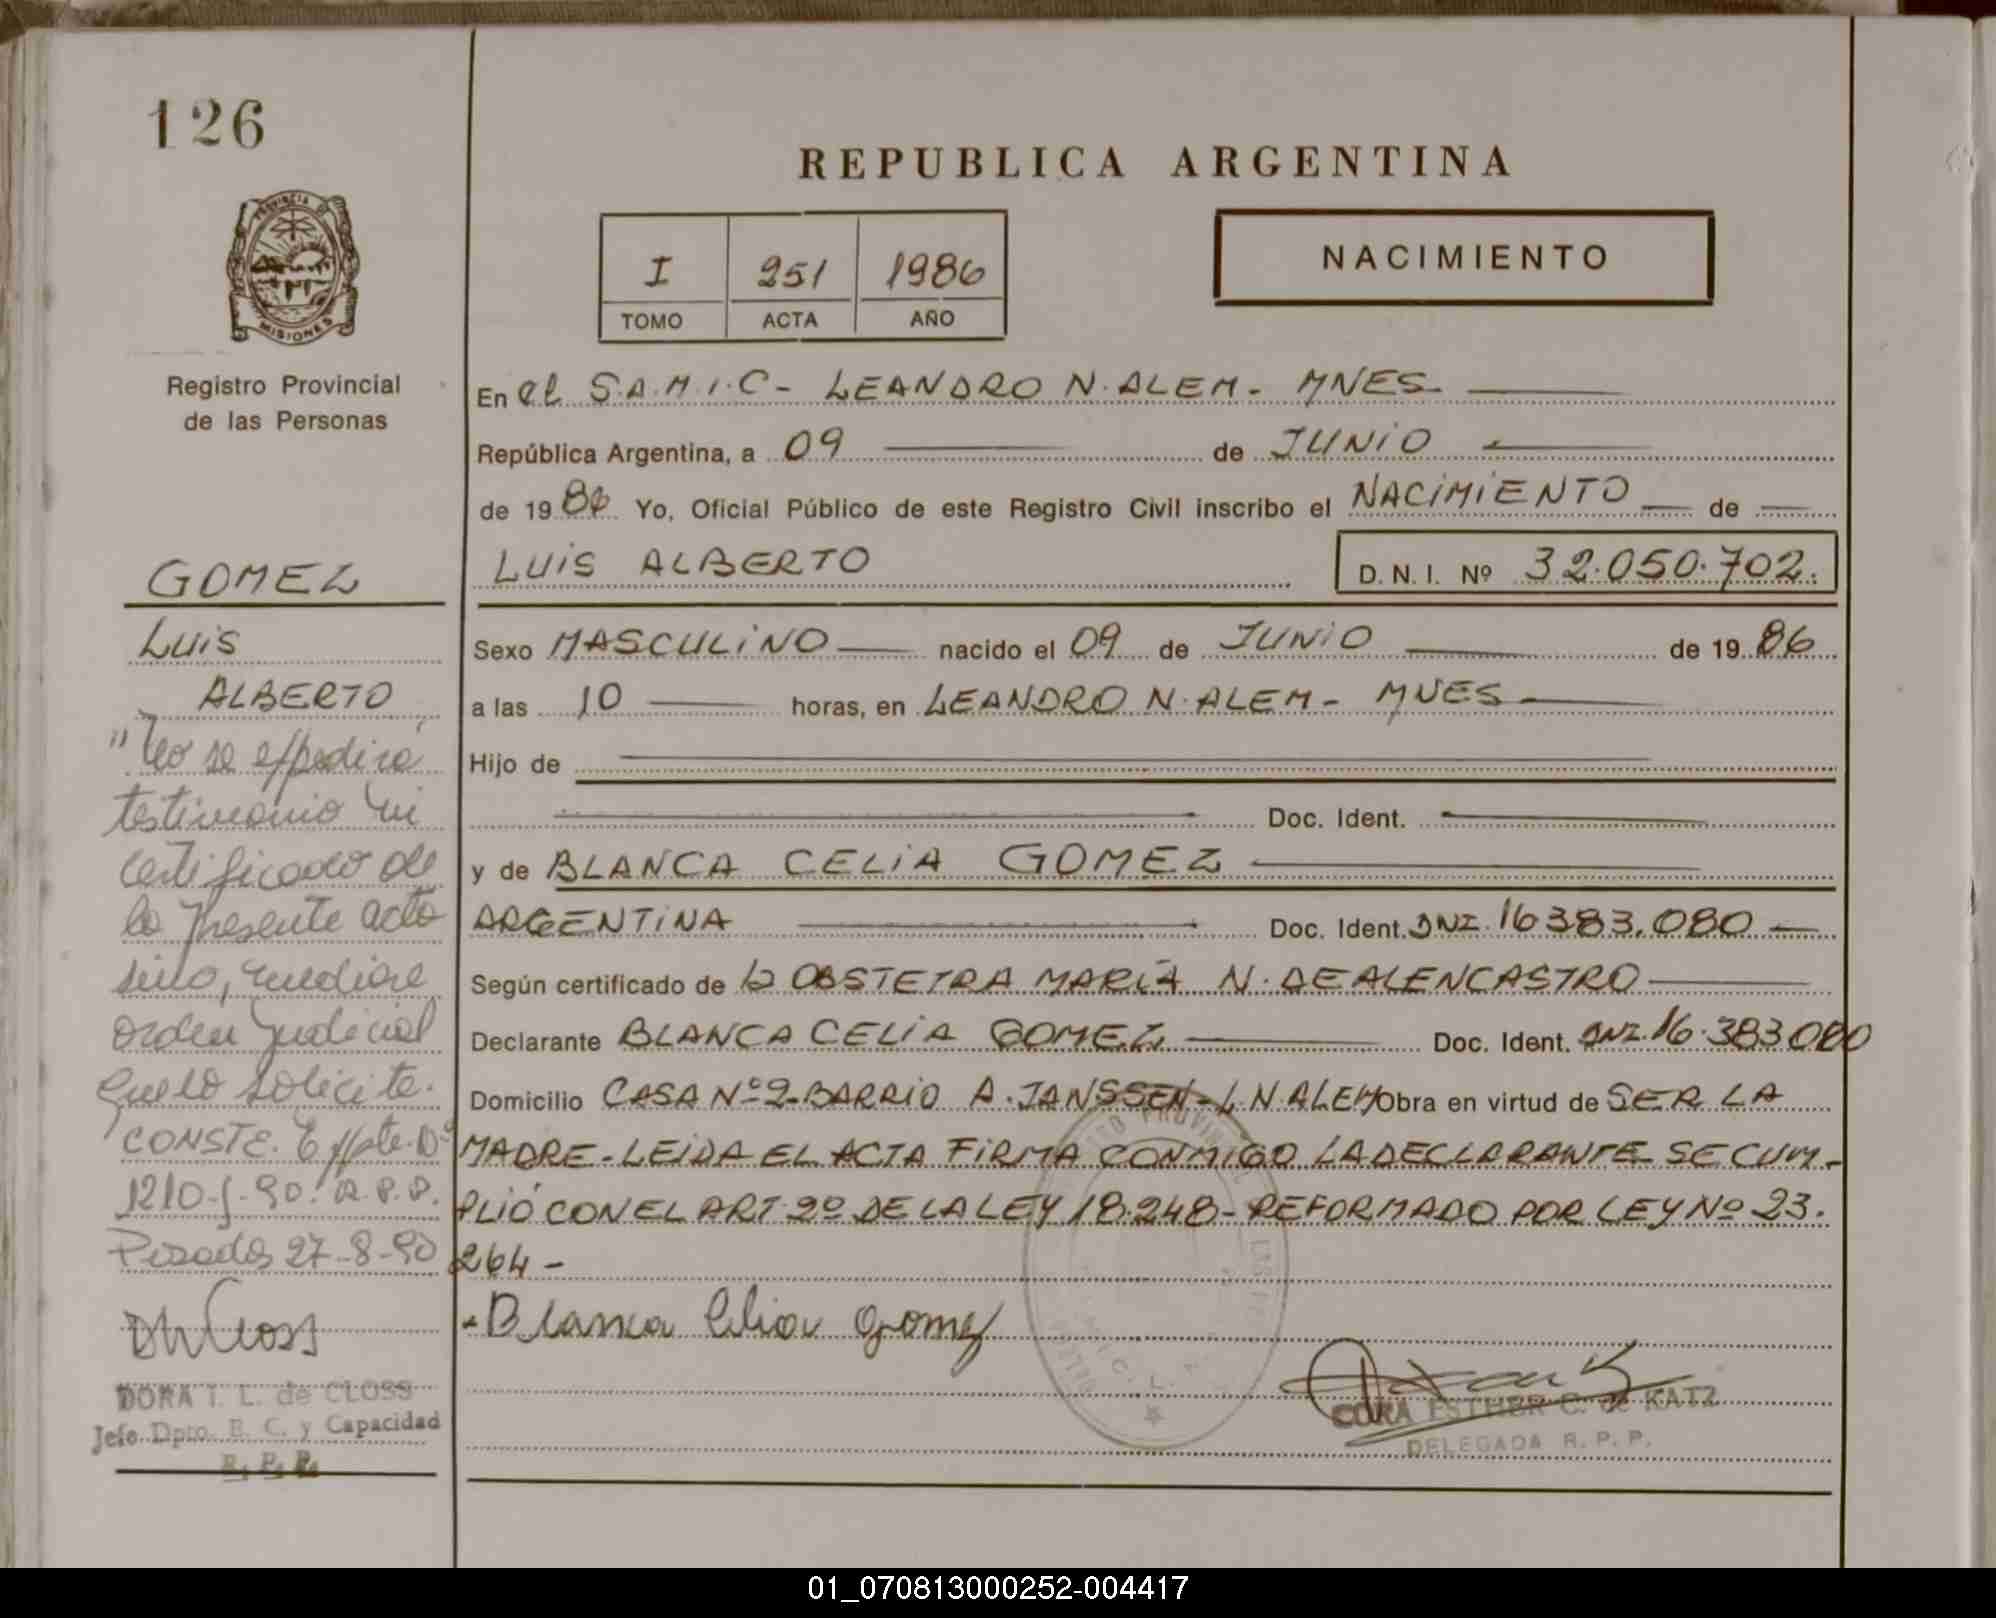 126
REPUBLICA ARGENTINA
PROVINCIA DE
MISIONES
Registro Provincial
de las Personas
I 251 1986
TOMO ACTA AÑO
NACIMIENTO
En el S.A.M.I.C- LEANDRO N. ALEM- MNES
República Argentina, a 09 de JUNIO
de 1986 Yo, Oficial Público de este Registro Civil inscribo el NACIMIENTO de
LUIS ALBERTO D.N.I. Nº 32.050.702.
Sexo MASCULINO nacido el 09 de JUNIO de 1986
a las 10 horas, en LEANDRO N. ALEM- MNES
Hijo de
Doc. Ident.
y de BLANCA CELIA GOMEZ
ARGENTINA Doc. Ident. DNI. 16383.080
Según certificado de la OBSTETRA MARIA N. DEALENCASTRO
Declarante BLANCA CELIA GOMEZ Doc. Ident. DNI. 16.383080
Domicilio CASA Nº2-BARRIO A. JANSSEN- L N ALEM Obra en virtud de SER LA
MADRE-LEIDA EL ACTA FIRMA CONMIGO LA DECLARANTE SE CUM-
PLIÓ CON EL ART. 2º DE LA LEY 18.248- REFORMADO POR LEY Nº 23.
264-
Blanca Celia Gomez
CORA ESTHER C. de KATZ
DELEGADA R. P. P.
GOMEZ
LUIS
ALBERTO
"No se expedirá
testimonio ni
certificado de
la presente acta
sino, mediare
orden judicial
que lo solicite.
CONSTE. Expte. Nº
1210-J-90. R.P.P.
Posadas 27-8-90
DORA I. L. de CLOSS
Jefe Dpto. E. C. y Capacidad
R. P. P.
01_070813000252-004417